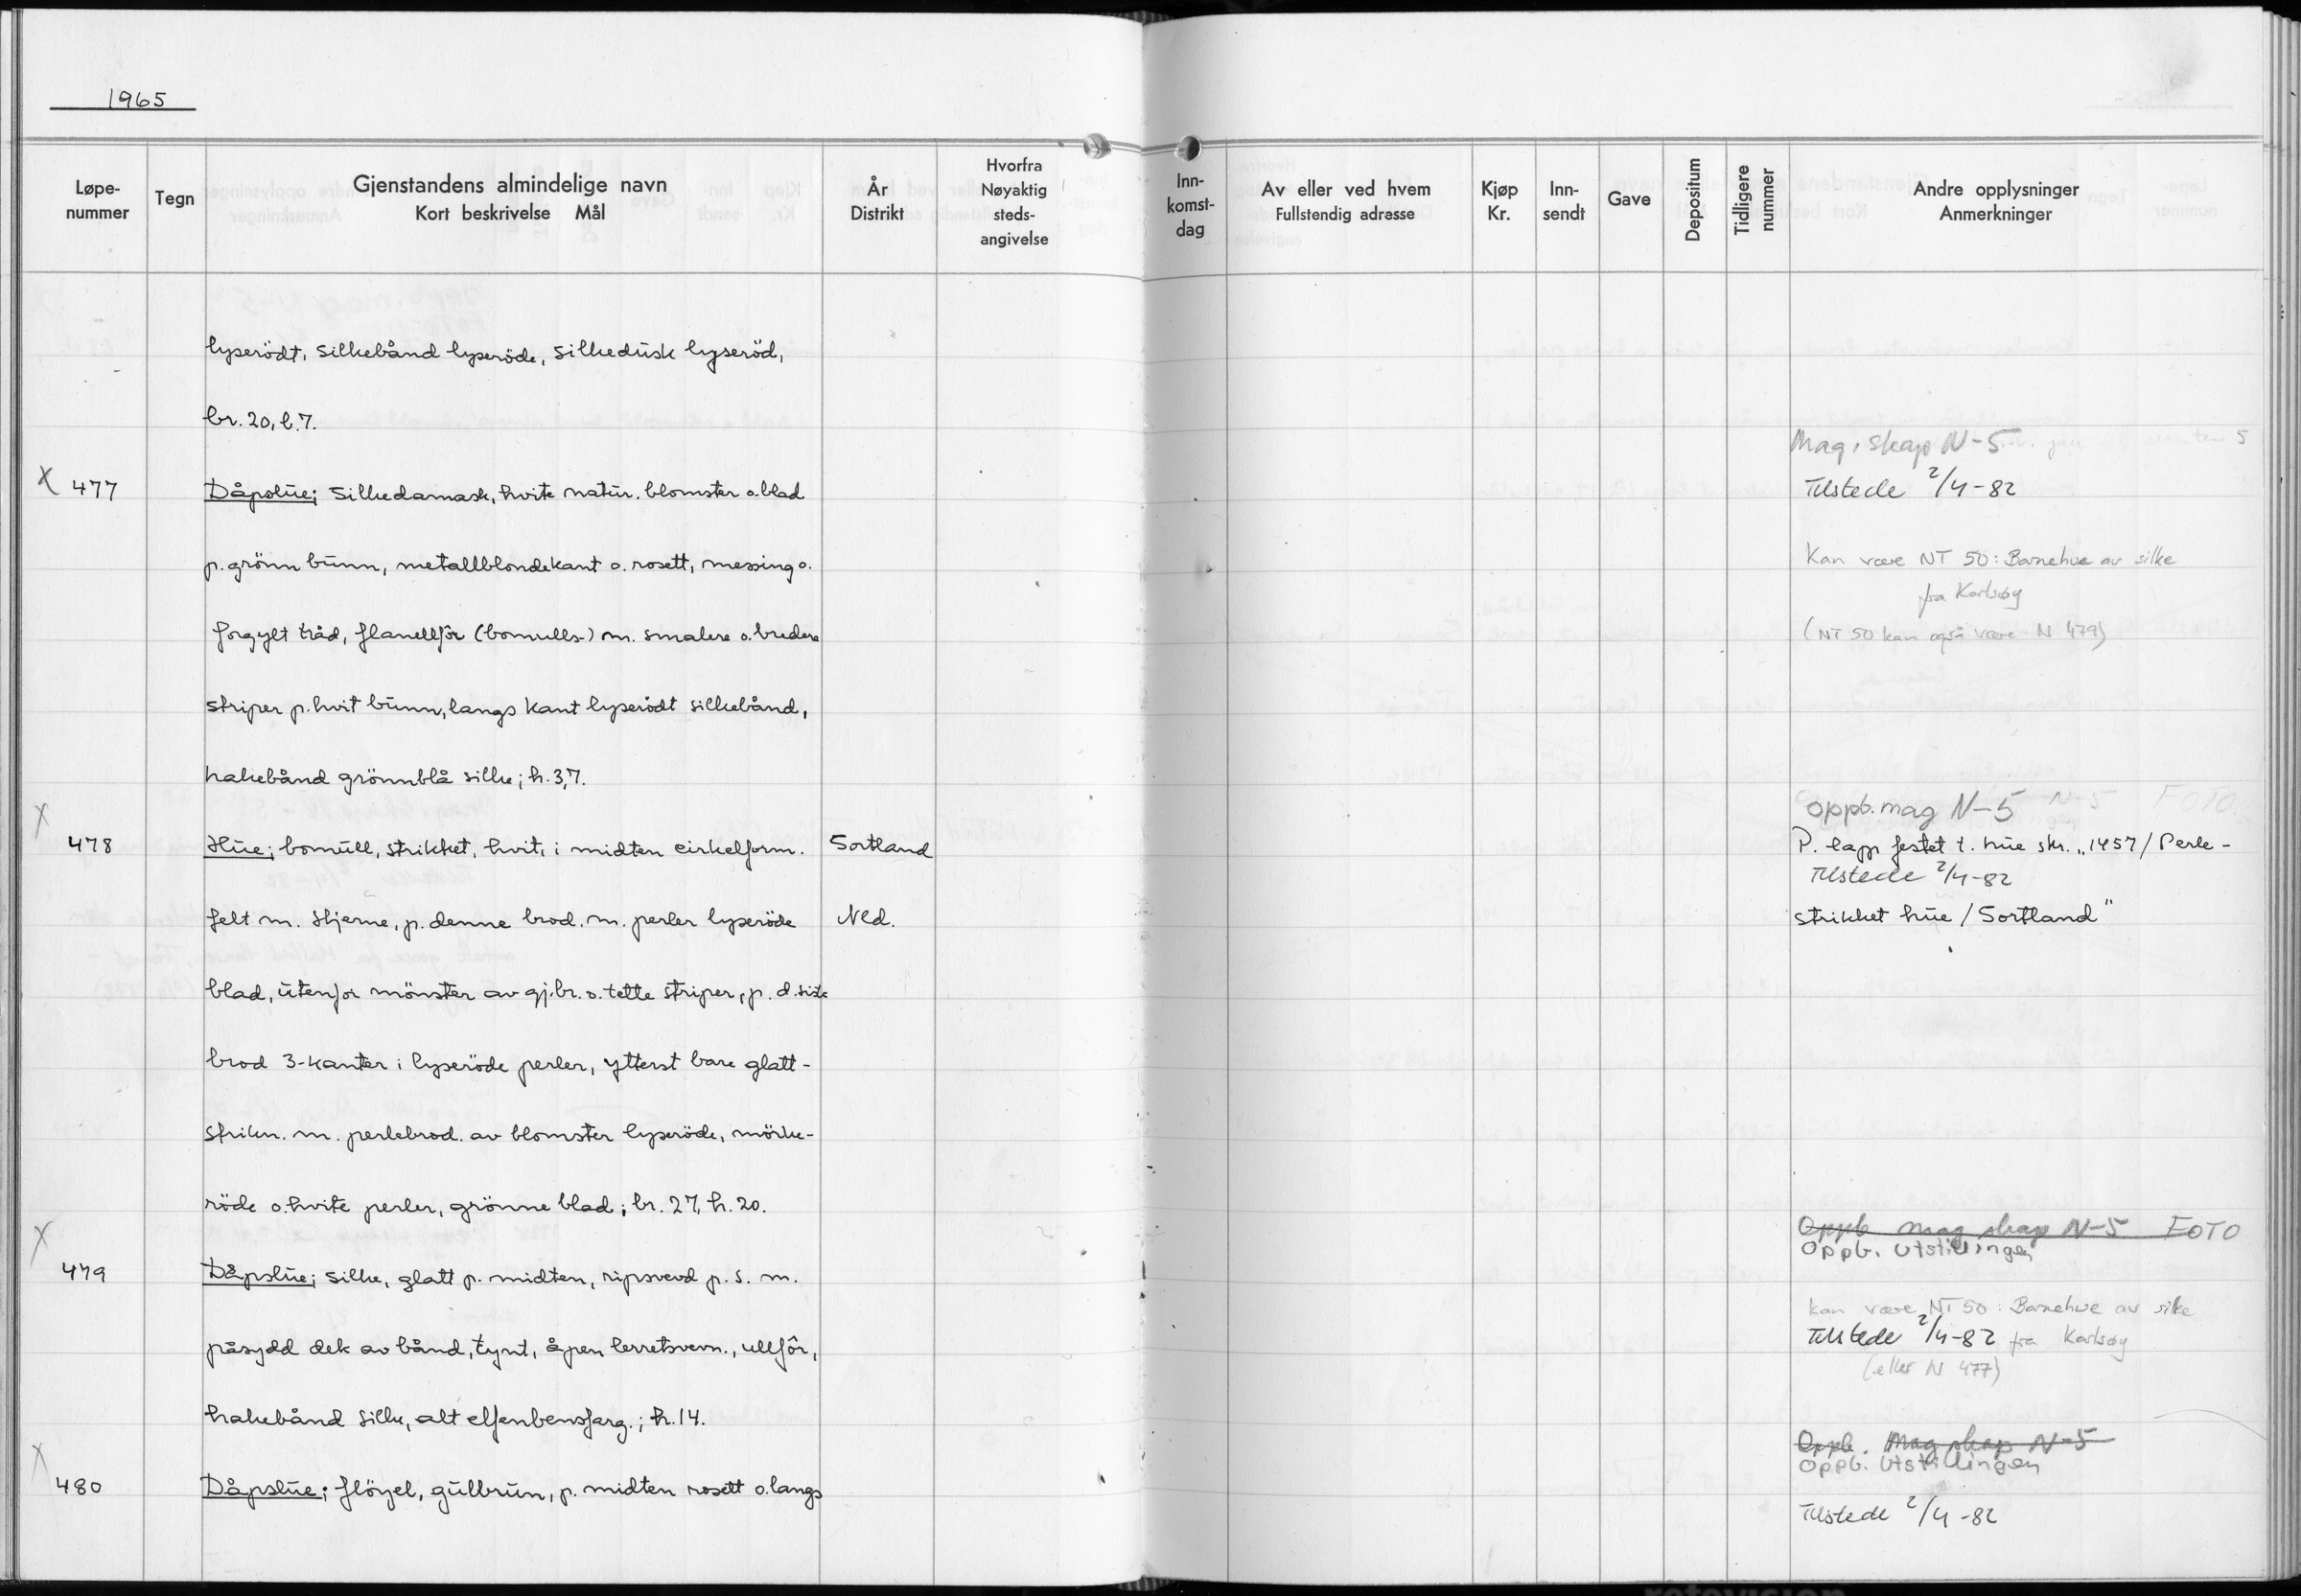 1965
Løpe-
nummer
Tegn
Gjenstandens almindelige navn
Kort beskrivelse Mål
År
Distrikt
Hvorfra
Nøyaktig
steds-
angivelse
Inn-
komst-
dag
Av eller ved hvem
Fullstendig adresse
Kjøp
Kr.
Inn-
sendt
Gave
Depositum
Tidligere
nummer
Andre opplysninger
Anmerkninger
lyserödt, silkebånd lyseröde, silkedusk lyseröd,
br. 20, l. 7.
Mag. skap N-5
X 477 Dåpslue; silkedamask, hvite natur. blomster o. blad
Tilstede 2/4-82
p. grönn bunn, metallblondekant o. rosett, messing o.
Kan være NT 50: Barnehue av silke
fra Karlsøy
forgylt tråd, flanellfôr (bomulls-) m. smalere o. bredere
(NT 50 kan også være N 479)
striper p. hvit bunn, langs kant lyserödt silkebånd,
hakebånd grönnblå silke; h. 3,7.
oppb. mag N-5 FOTO
X 478 Hue; bomull, strikket, hvit, i midten cirkelform. Sortland
P. lapp festet t. hue skr. „1457/ Perle-
Tilstede 2/4-82
felt m. stjerne, p. denne brod. m. perler lyseröde Nld.
strikket hue / Sortland"
blad, utenfor mönster av gj.br. o. tette striper, p. d. siste
brod 3-kanter i lyseröde perler, ytterst bare glatt-
strikn. m. perlebrod. av blomster lyseröde, mörke-
röde o. hvite perler, grönne blad; br. 27, h. 20.
Oppb mag skap N-5 FOTO
Oppb. Utstillingen
X 479 Dåpslue; silke, glatt p. midten, ripsvevd p. s. m.
kan være NT 50: Barnehue av silke
påsydd dek av bånd, tynt, åpen lerretsvevn., ullfôr,
Tilstede 2/4-82 fra Karlsøy
(eller N 477)
hakebånd silke, alt elfenbensfarg.; h. 14.
Oppb. Mag skap N-5
Oppb. Utstillingen
X 480 Dåpslue; flöyel, gulbrun, p. midten rosett o. langs
Tilstede 2/4-82